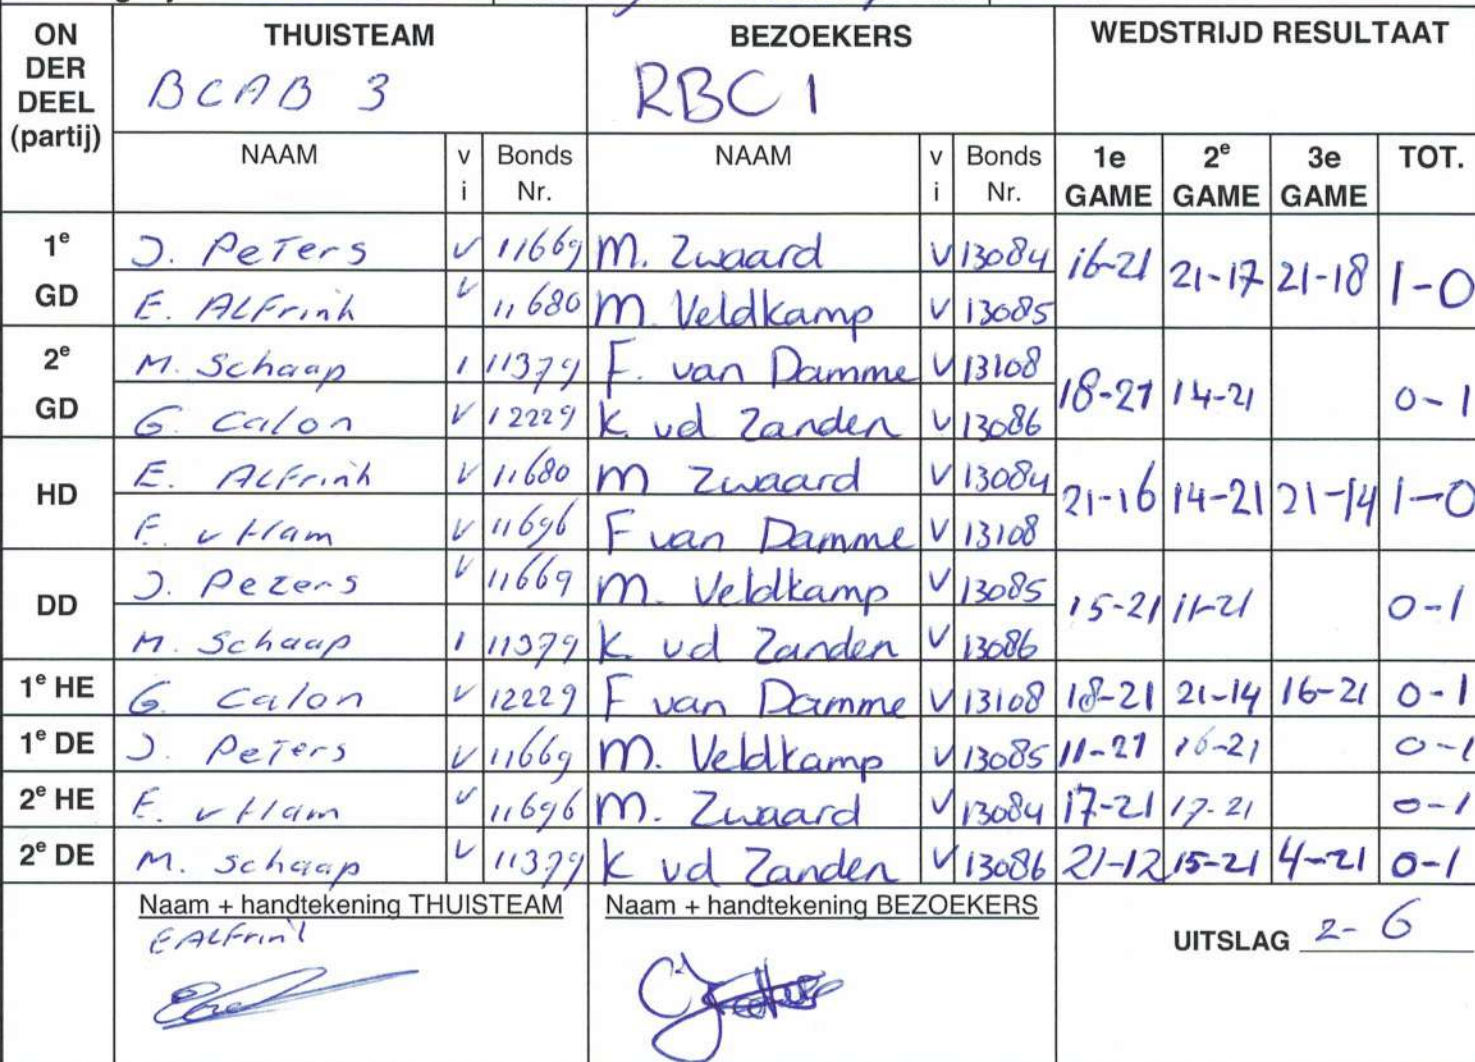 ON DER DEEL (partij) THUISTEAM BEZOEKERS WEDSTRIJD RESULTAAT
BCAB 3 RBC 1
NAAM v i Bonds Nr. NAAM v i Bonds Nr. 1e GAME 2e GAME 3e GAME TOT.
1e GD J. Peters v 11669 M. Zwaard v 13084 16-21 21-17 21-18 1-0
E. Alfrink v 11680 M. Veldkamp v 13085
2e GD M. Schaap i 11379 F. van Damme v 13108 18-21 14-21 0-1
G. Calon v 12229 K vd Zanden v 13086
HD E. Alfrink v 11680 M Zwaard v 13084 21-16 14-21 21-14 1-0
F. v Ham v 11696 F van Damme v 13108
DD J. Peters v 11669 M. Veldkamp v 13085 15-21 11-21 0-1
M. Schaap i 11379 K vd Zanden v 13086
1e HE G. Calon v 12229 F van Damme v 13108 18-21 21-14 16-21 0-1
1e DE J. Peters v 11669 M. Veldkamp v 13085 11-21 16-21 0-1
2e HE F. v Ham v 11696 M. Zwaard v 13084 17-21 17-21 0-1
2e DE M. Schaap v 11379 K vd Zanden v 13086 21-12 15-21 4-21 0-1
Naam + handtekening THUISTEAM Naam + handtekening BEZOEKERS
E Alfrink
UITSLAG 2-6